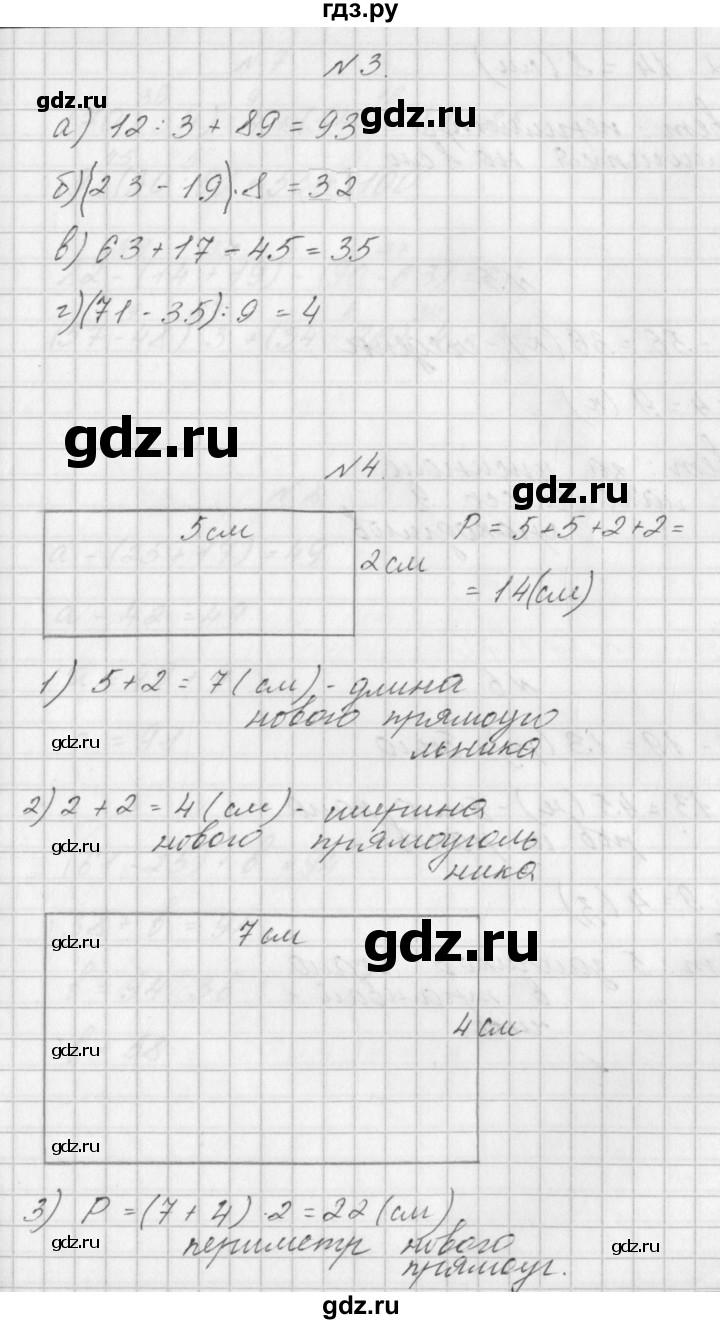 гдз.ру
№3.
gdz.ru
gdz.ru
а) 12 : 3 + 89 = 93
б) (23 - 19) · 8 = 32
в) 63 + 17 - 45 = 35
г) (71 - 35) : 9 = 4
gdz.ru
№4.
gdz.ru
5 см
P = 5 + 5 + 2 + 2 =
2 см
= 14 (см)
1) 5 + 2 = 7 (см) - длина
нового прямоуго
gdz.ru
льника
2) 2 + 2 = 4 (см) - ширина
нового прямоуголь
gdz.ru
ника
7 см
gdz.ru
gdz.ru
4 см
gdz.ru
gdz.ru
3) P = (7 + 4) · 2 = 22 (см)
периметр нового
gdz.ru
gdz.ru
прямоуг.
gdz.ru